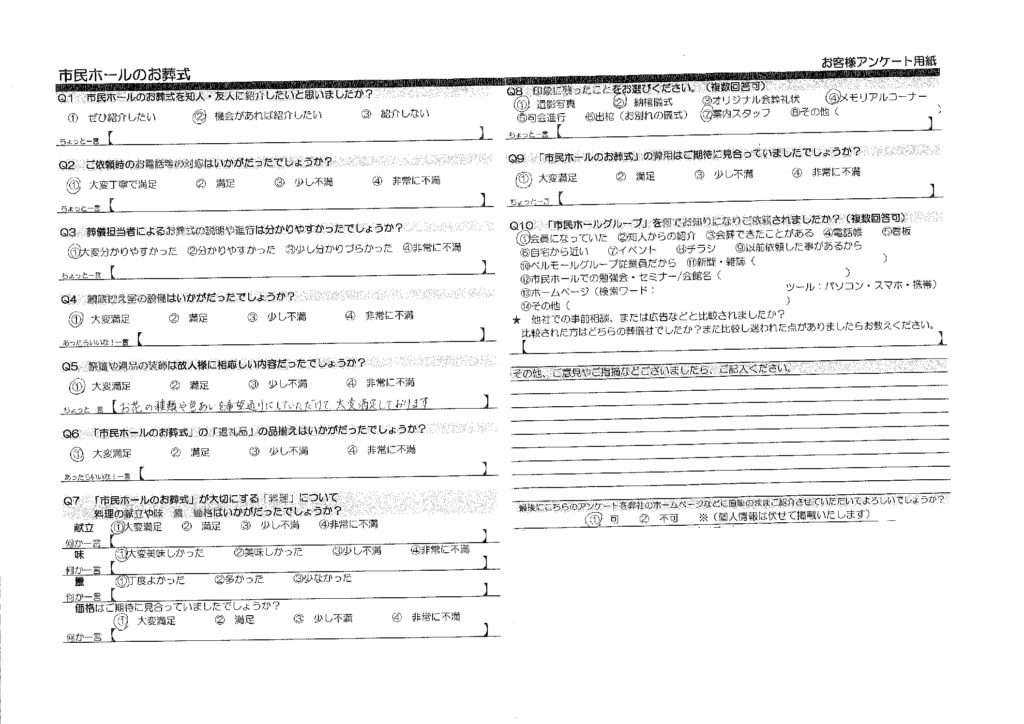 市民ホールのお葬式
お客様アンケート用紙
Q1 市民ホールのお葬式を知人・友人に紹介したいと思いましたか？
① ぜひ紹介したい ② 機会があれば紹介したい ③ 紹介しない
ちょっと一言【 】
Q2 ご依頼時のお電話等の対応はいかがだったでしょうか？
① 大変丁寧で満足 ② 満足 ③ 少し不満 ④ 非常に不満
ちょっと一言【 】
Q3 葬儀担当者によるお葬式の説明や進行は分かりやすかったでしょうか？
①大変分かりやすかった ②分かりやすかった ③少し分かりづらかった ④非常に不満
ちょっと一言【 】
Q4 親族控え室の設備はいかがだったでしょうか？
① 大変満足 ② 満足 ③ 少し不満 ④ 非常に不満
あったらいいな！一言【 】
Q5 祭壇や遺品の装飾は故人様に相応しい内容だったでしょうか？
① 大変満足 ② 満足 ③ 少し不満 ④ 非常に不満
ちょっと一言【お花の種類や色あいを希望通りにしていただけて 大変満足しております】
Q6 「市民ホールのお葬式」の「返礼品」の品揃えはいかがだったでしょうか？
① 大変満足 ② 満足 ③ 少し不満 ④ 非常に不満
あったらいいな！一言【 】
Q7 「市民ホールのお葬式」が大切にする「料理」について
料理の献立や味 量 価格はいかがだったでしょうか？
献立 ①大変満足 ② 満足 ③ 少し不満 ④非常に不満
何か一言【 】
味 ①大変美味しかった ②美味しかった ③少し不満 ④非常に不満
何か一言【 】
量 ①丁度よかった ②多かった ③少なかった
何か一言【 】
価格はご期待に見合っていましたでしょうか？
① 大変満足 ② 満足 ③ 少し不満 ④ 非常に不満
何か一言【 】
Q8 印象に残ったことをお選びください。（複数回答可）
① 遺影写真 ② 納棺儀式 ③オリジナル会葬礼状 ④メモリアルコーナー
⑤司会進行 ⑥出棺（お別れの儀式） ⑦案内スタッフ ⑧その他（ ）
ちょっと一言【 】
Q9 「市民ホールのお葬式」の費用はご期待に見合っていましたでしょうか？
① 大変満足 ② 満足 ③ 少し不満 ④ 非常に不満
ちょっと一言【 】
Q10 「市民ホールグループ」を何でお知りになりご依頼されましたか？（複数回答可）
①会員になっていた ②知人からの紹介 ③会葬できたことがある ④電話帳 ⑤看板
⑥自宅から近い ⑦イベント ⑧チラシ ⑨以前依頼した事があるから
⑩ベルモールグループ従業員だから ⑪新聞・雑誌（ ）
⑫市民ホールでの勉強会・セミナー/会館名（ ）
⑬ホームページ（検索ワード： ツール：パソコン・スマホ・携帯）
⑭その他（ ）
★ 他社での事前相談、または広告などと比較されましたか？
比較された方はどちらの葬儀社でしたか？また比較し迷われた点がありましたらお教えください。
【 】
その他、ご意見やご指摘などございましたら、ご記入ください。
最後にこちらのアンケートを弊社のホームページなどに直筆のままご紹介させていただいてよろしいでしょうか？
① 可 ② 不可 ※（個人情報は伏せて掲載いたします）